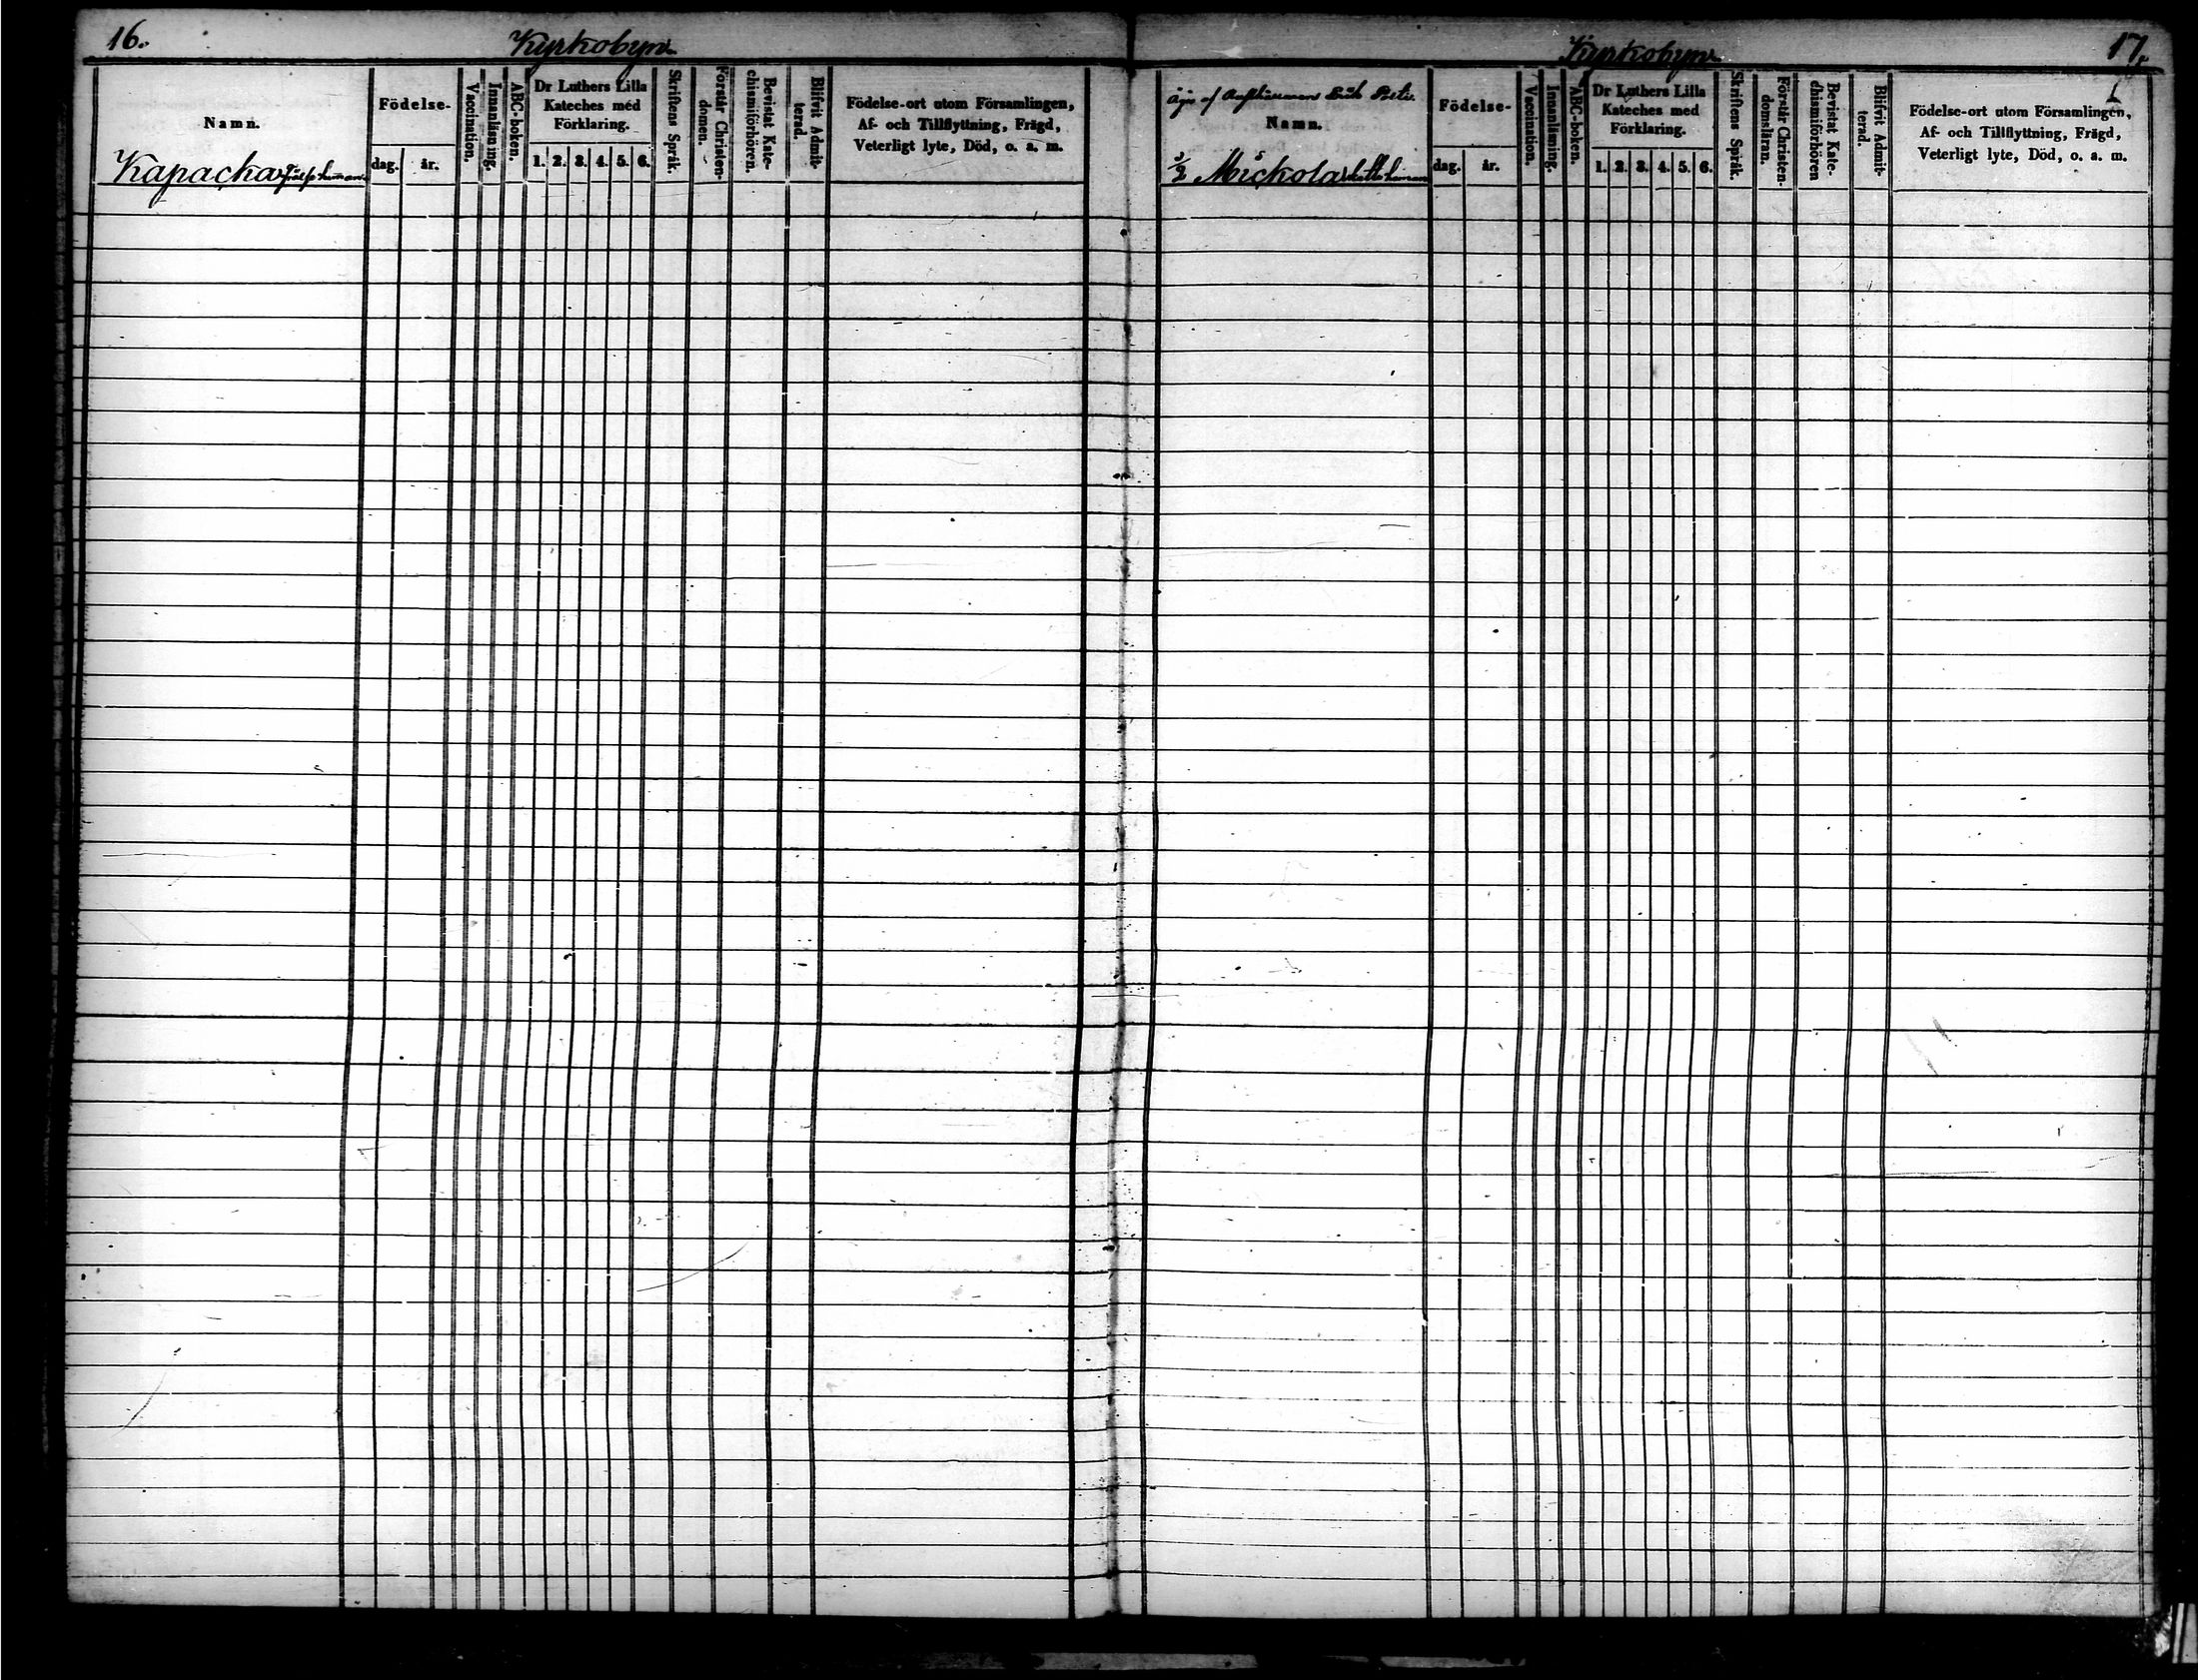 16.
Kyrkobyn.
Namn.
Kapacka
Födelse-
dag. år.
Vaccination.
Innanläsning.
ABC-boken.
Dr Luthers Lilla
Kateches med
Förklaring.
1. 2. 3. 4. 5. 6.
Skriftens Språk.
Förstår Christen-
domen.
Bevistat Kate-
chismiförhören.
Blifvit Admit-
terad.
Födelse-ort utom Församlingen,
Af- och Tillflyttning, Frägd,
Veterligt lyte, Död, o. a. m.
Kyrkobyn.
17.
Äges af
Namn.
1/2 Mickola
Födelse-
dag. år.
Vaccination.
Innanläsning.
ABC-boken.
Dr Luthers Lilla
Kateches med
Förklaring.
1. 2. 3. 4. 5. 6.
Skriftens Språk.
Förstår Christen-
domsläran.
Bevistat Kate-
chismiförhören
Blifvit Admit-
terad.
Födelse-ort utom Församlingen,
Af- och Tillflyttning, Frägd,
Veterligt lyte, Död, o. a. m.